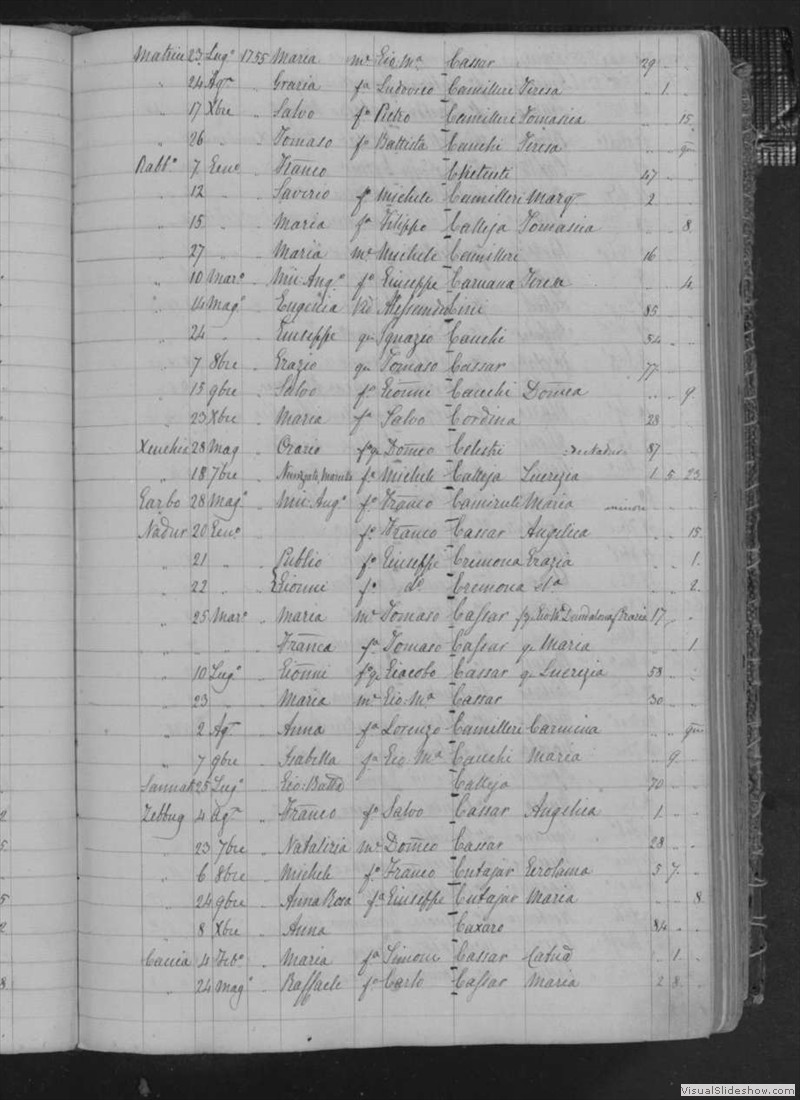 Matrice 23 Lug.o 1755 Maria m.e Gio M.a Cassar 29 " "
" 24 Ag.to " Grazia f.a Ludovico Camilleri Teresa " 1 "
" 17 Xbre " Salvo f.o Pietro Camilleri Tomasina " " 15
" 26 " " Tomaso f.o Battista Cauchi Teresa
Rabb.o 7 Gen.o " Franco 47 " "
" 12 " " Saverio f.o Michele Camilleri Marg. 2 " "
" 15 " " Maria f.a Filippo Calleja Tomasina " " 8
" 27 " " Maria m.e Michele Camilleri 16 " "
" 10 Mar.o " Mic: Ang.o f.o Giuseppe Caruana Teresa " " 4
" 14 Mag.o " Eugenia Alessandro Cini 85 " "
" 24 " " Giuseppe qu Ignazio Cauchi 54 " "
" 7 8bre " Grazio qu Tomaso Cassar 77 " "
" 15 9bre " Salvo f.o Gionni Cauchi Domca " " 9
" 23 Xbre " Maria f.a Salvo Cordina 28 " "
Xeuchia 28 Mag " Orazio f.qu Domco Celestri de Nadur 87
" 18 7bre " Michele Calleja Lucrezia 1 5 23
Garbo 28 Mag.o " Mic: Ang.o f.o Franco Maria minore
Nadur 20 Gen.o f.o Franco Cassar Angelica " " 15
" 21 " Publio f.o Giuseppe Cremona Grazia " " 1
" 22 " Gionni f.o d.o Cremona " " 2
" 25 Mar.o " Maria m.e Tomaso Cassar 17 " "
" " " Franca f.a Tomaso Cassar q. Maria " " 1
" 10 Lug.o " Gionni f.qu Giacobo Cassar q. Lucrezia 58 " "
" 23 " Maria m.e Gio M.a Cassar 30 " "
" 2 Ag.to " Anna f.a Lorenzo Camilleri Carmina
" 7 9bre " Isabella f.a Gio M.a Cauchi Maria " 9 "
Sannat 25 Lug.o " Gio: Batta Calleja 70 " "
Zebbug 4 Ag.to " Franco f.o Salvo Cassar Angelica 1 " "
" 23 7bre " Natalizia m.e Domco Cassar 28 " "
" 6 8bre " Michele f.o Franco Cutajar Gerolama 5 7 "
" 24 9bre " Anna Rosa f.a Giuseppe Cutajar Maria " " 8
" 8 Xbre " Anna Caxaro 84 " "
Caccia 4 Feb.o " Maria f.a Simone Cassar " 1 "
" 24 Mag.o " Raffaele f.o Carlo Cassar Maria 2 8 "
VisualSlideshow.com